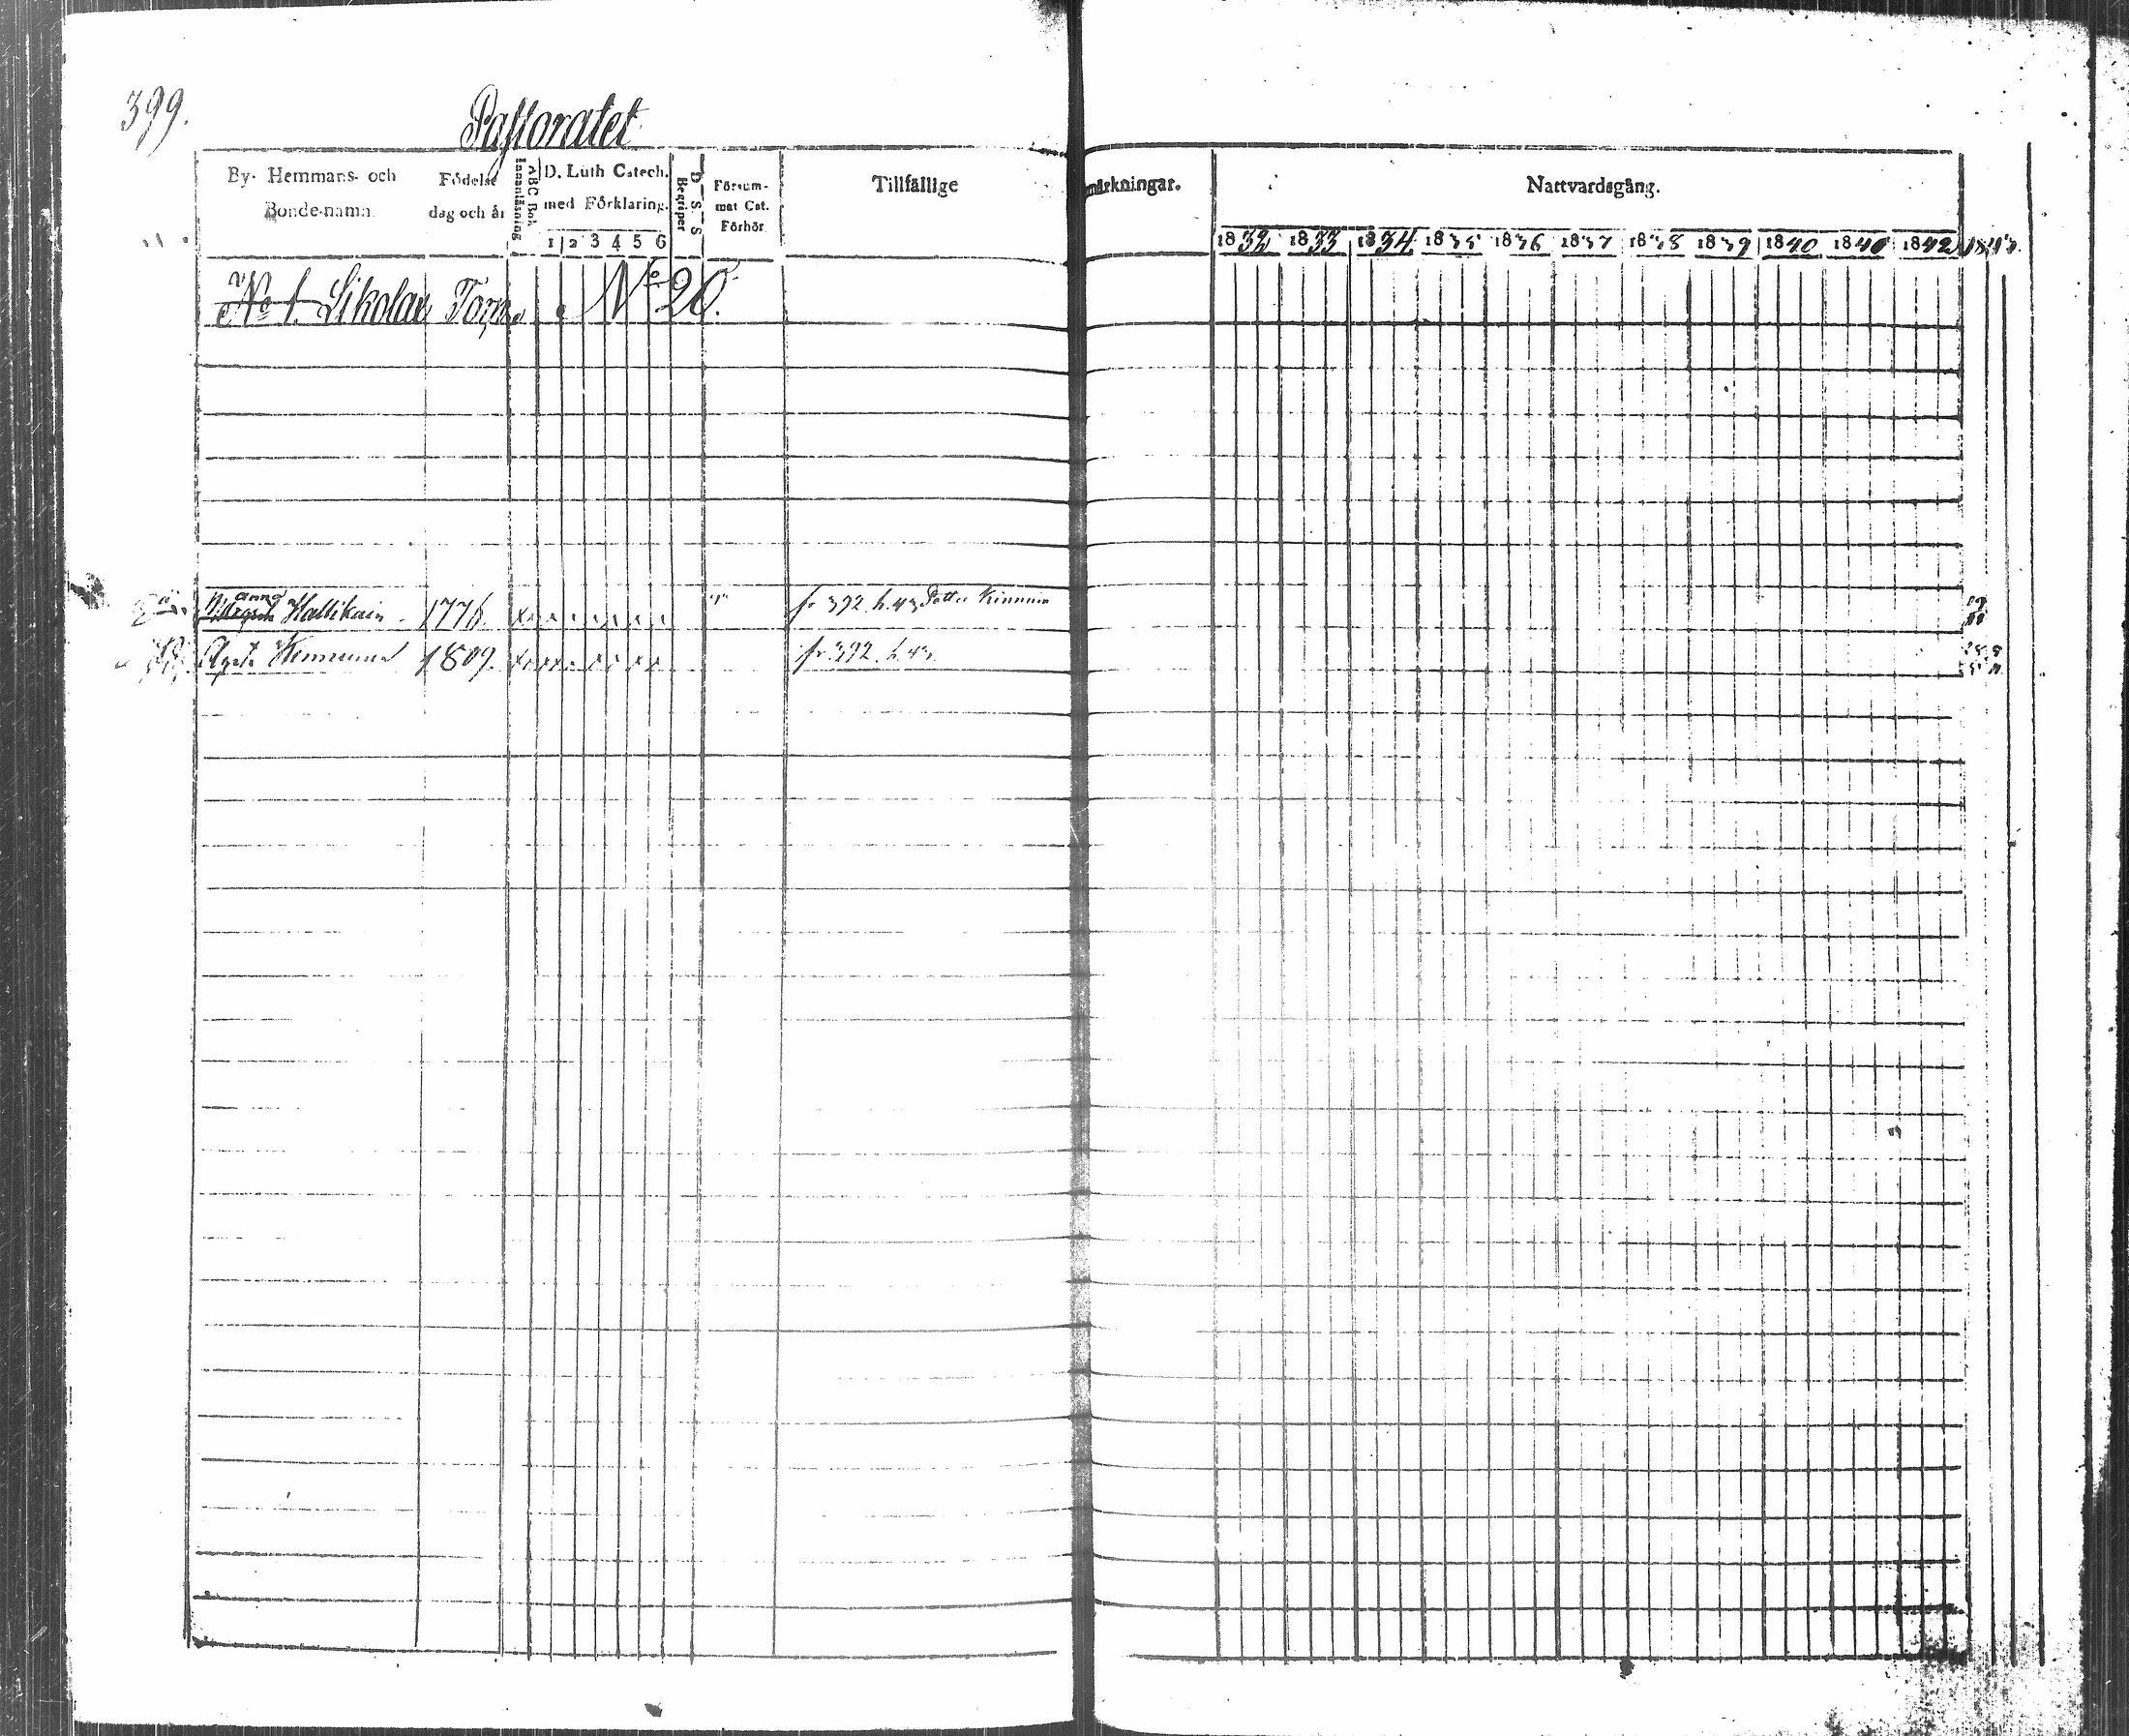 399.
Pastoratet
By- Hemmans- och Bonde-namn
Födelse dag och år
Innanläsning
ABC Bok
D. Luth Catech. med Förklaring.
1 2 3 4 5 6
Begriper
D. S. S
Försummat Cat. Förhör
Tillfällige
märkningar.
Nattvardsgång.
1832 1833 1834 1835 1836 1837 1838 1839 1840 1840 1842 1843
No 1. Likolan Torp No 20.
Anna Hallikain 1776. fr 392. h. 43 Petter Kinnun
Agata 1809. fr. 392. h. 43.